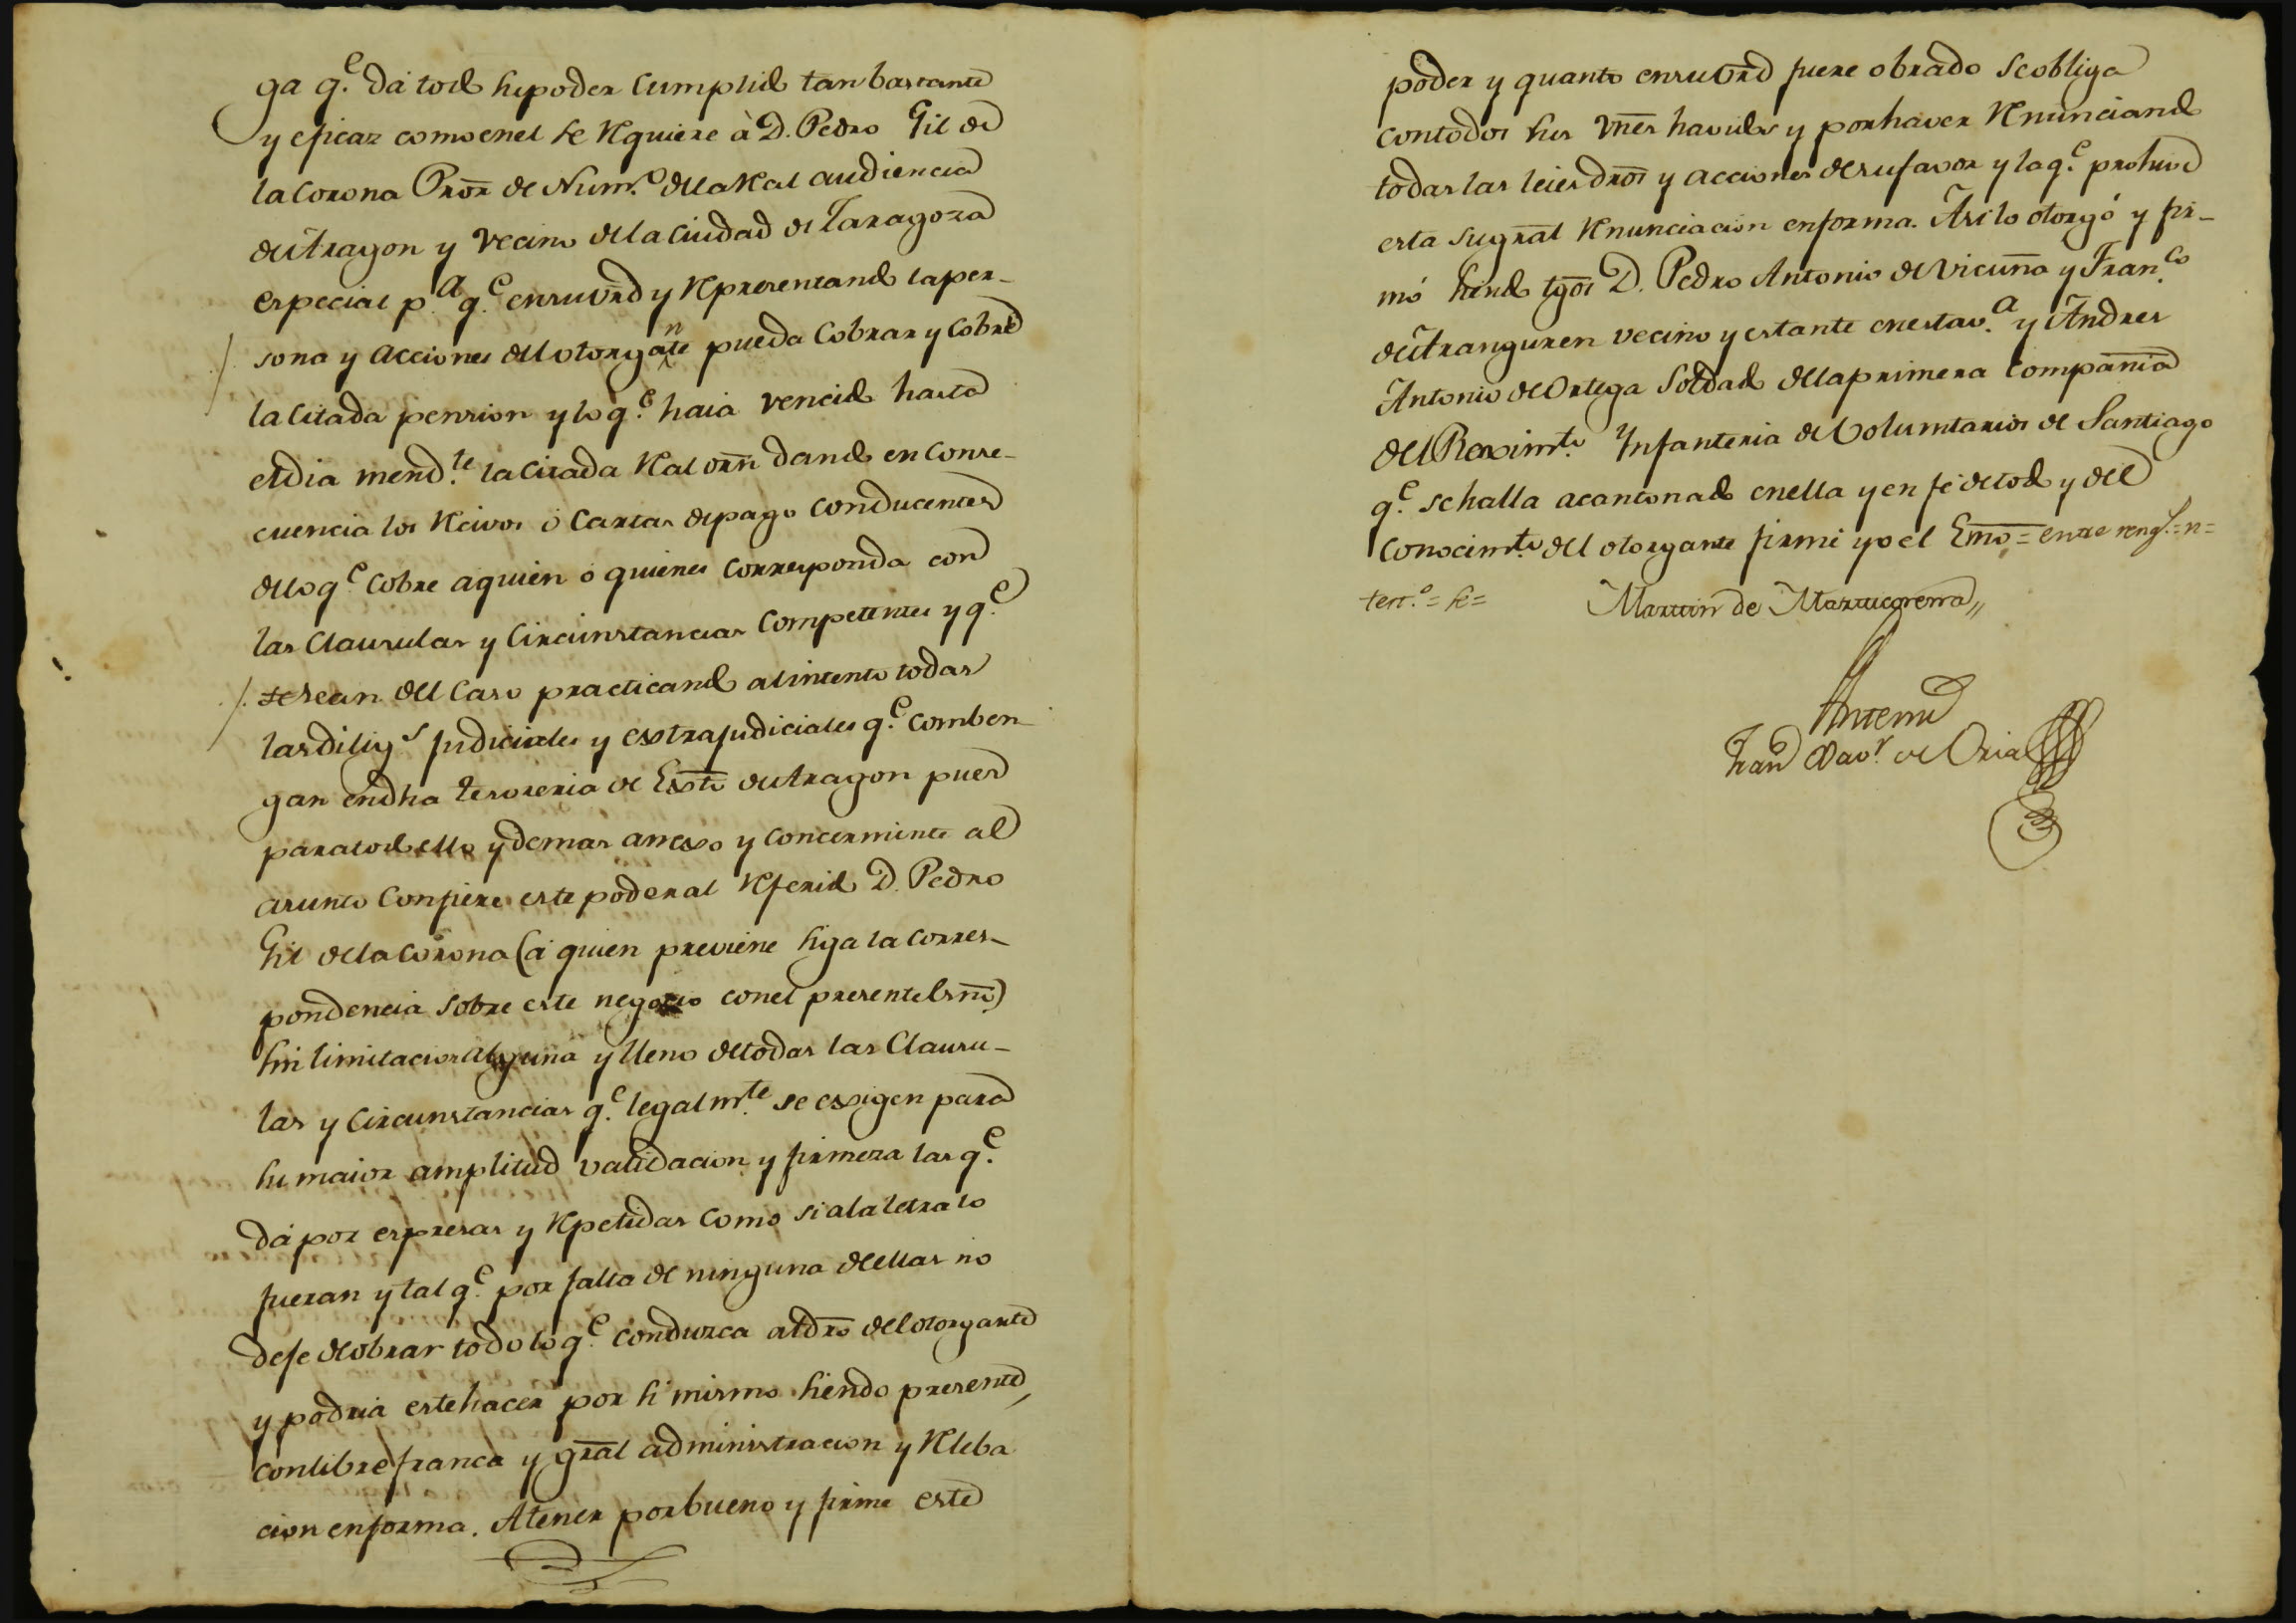 ga q.e dà todo su poder cumplido tan bastante
y eficaz como en el se requiere à D. Pedro Gil de
la Corona Pror de Num.o de la Real audiencia
de Aragon y vecino de la Ciudad de Zaragoza
especial p.a q.e en su vrd y representando la per-
sona y acciones del otorgante pueda Cobrar y Cobre
la Citada pension y lo q.e haia vencido hasta
el dia mend.te la citada Real orn dando en conse-
cuencia los recivos ó Cartas de pago conducentes
de lo q.e cobre a quien ó quienes corresponda con
las Clausulas y Circunstancias Competentes y q.e
se sean del Caso practicando al intento todas
las dilig.s Judiciales y extrajudiciales q.e comben-
gan en dha tesoreria de Exto de Aragon pues
para todo ello y demas anexo y concerniente al
asunto Confiere este poder al referido D. Pedro
Gil de la Corona (à quien previene siga la corres-
pondencia sobre este negocio con el presente Esno)
sin limitacion alguna y lleno de todas las Clausu-
las y Circunstancias q.e legalm.te se exigen para
su maior amplitud validacion y firmeza las q.e
dá por expresas y repetidas como si a la letra lo
fueran y tal q.e por falta de ninguna de ellas no
deje de obrar todo lo q.e conduzca al dro del otorgante
y podria este hacer por si mismo siendo presente,
con libre franca y gral administracion y releba
cion en forma. A tener por bueno y firme este
poder y quanto en su vrd fuere obrado se obliga
con todos sus vnes havidos y por haver renunciando
todas las leies dros y acciones de su favor y la q.e prohive
esta su gral renunciacion en forma. Asi lo otorgó y fir-
mó siendo tgos D. Pedro Antonio de Vicuña y Fran.co
de Aranguren vecino y estante en esta v.a y Andres
Antonio de Ortega Soldado de la primera Compañia
del Reximt.o Infanteria de Voluntarios de Santiago
q.e se halla acantonado en ella y en fe de todo y de el
Conocimt.o del otorgante firme yo el Esno = entre rengs. = n =
test.o = se = Martin de Marticorena
Antemi
Fran Xav.r de Oria